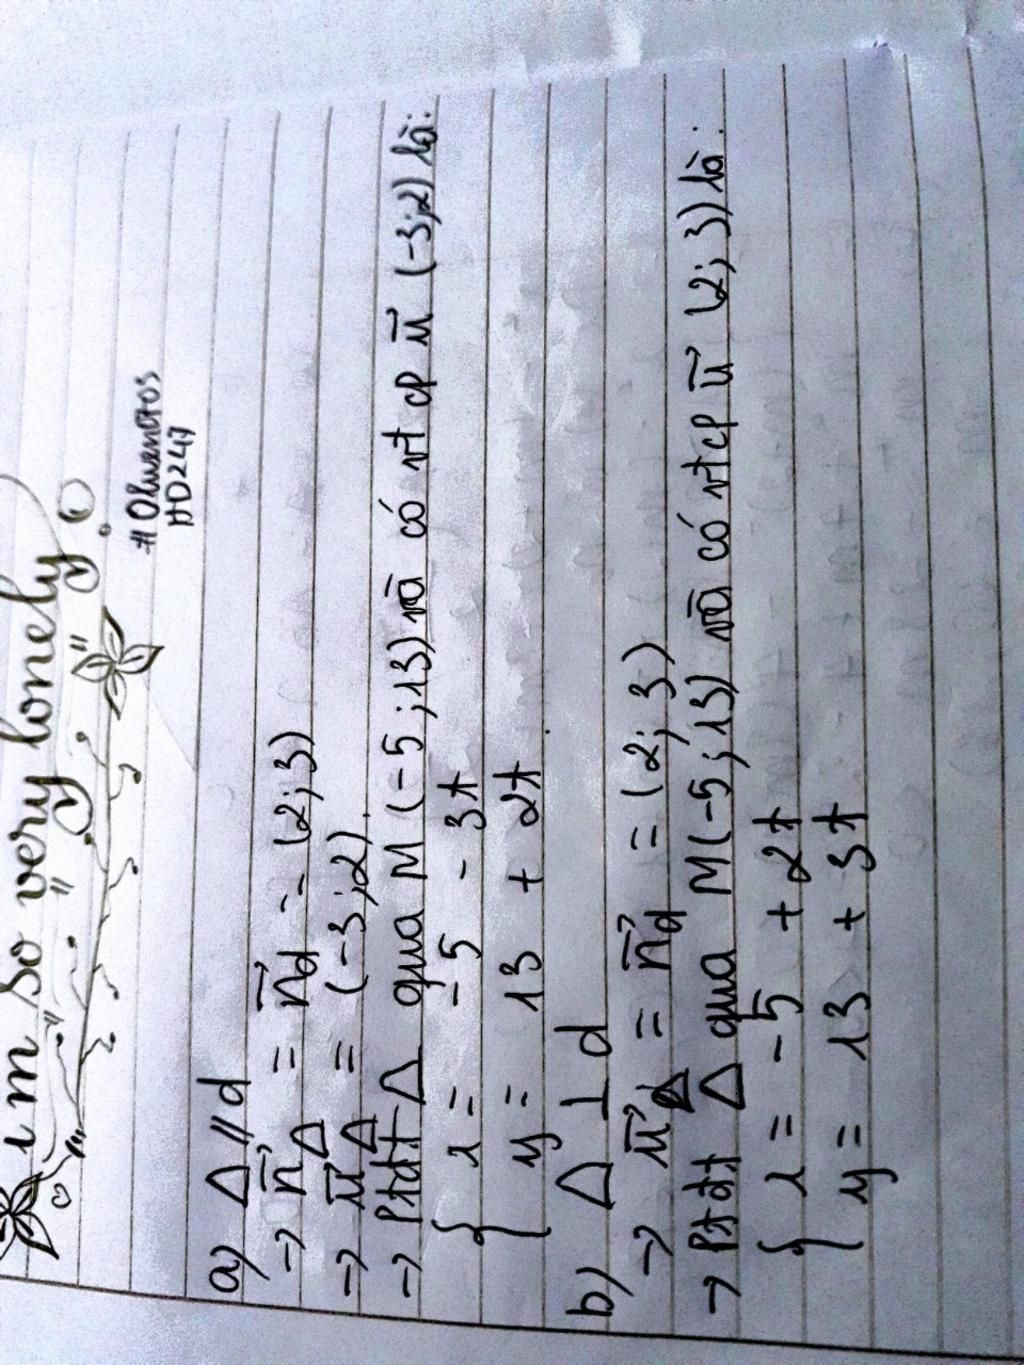 i'm so very lonely
# Olwenotos
HD247
a) Δ // d
→ n⃗Δ = n⃗d = (2; 3)
→ u⃗Δ = (-3; 2).
→ Ptđt Δ qua M (-5; 13) và có vtcp u⃗ (-3; 2) là:
{ x = -5 - 3t
y = 13 + 2t
b) Δ ⊥ d
→ u⃗Δ = n⃗d = (2; 3)
→ Ptđt Δ qua M(-5; 13) và có vtcp u⃗ (2; 3) là:
{ x = -5 + 2t
y = 13 + 3t